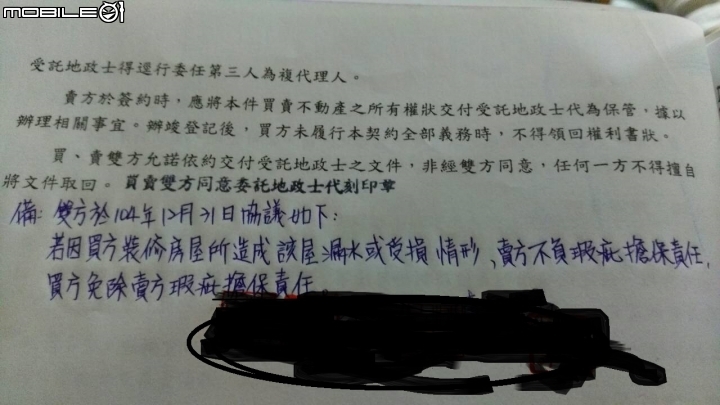 MOBILE01
受託地政士得逕行委任第三人為複代理人。
賣方於簽約時，應將本件買賣不動產之所有權狀交付受託地政士代為保管，據以
辦理相關事宜。辦竣登記後，買方未履行本契約全部義務時，不得領回權利書狀。
買、賣雙方允諾依約交付受託地政士之文件，非經雙方同意，任何一方不得擅自
將文件取回。買賣雙方同意委託地政士代刻印章
備：雙方於104年12月31日協議如下：
若因買方裝修房屋所造成該屋漏水或受損情形、賣方不負瑕疵擔保責任，
買方免除賣方瑕疵擔保責任。